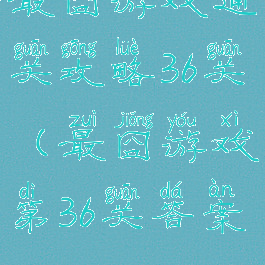 最囧游戏通
guān gōng lüè guān
关攻略36关
zuì jiǒng yóu xì
(最囧游戏
dì guān dá àn
第36关答案